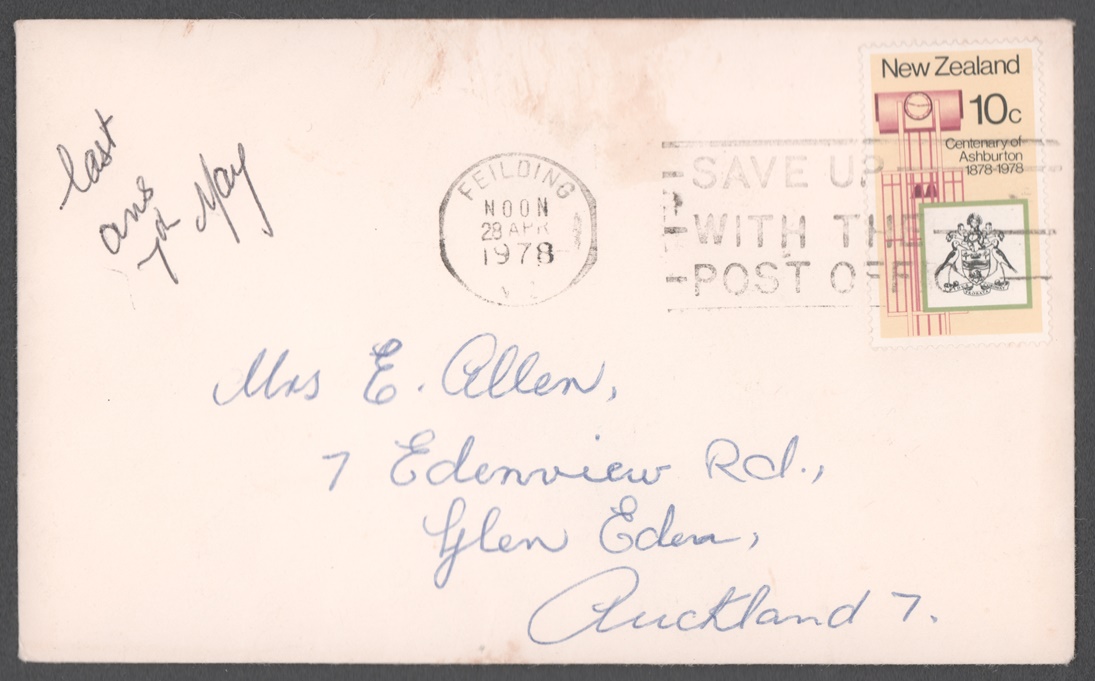 last
ans
7th May
FEILDING
NOON
28 APR
1978
SAVE UP
WITH THE
POST OFF
New Zealand
10c
Centenary of
Ashburton
1878-1978
Mrs E. Allen,
7 Edenview Rd.,
Glen Eden,
Auckland 7.